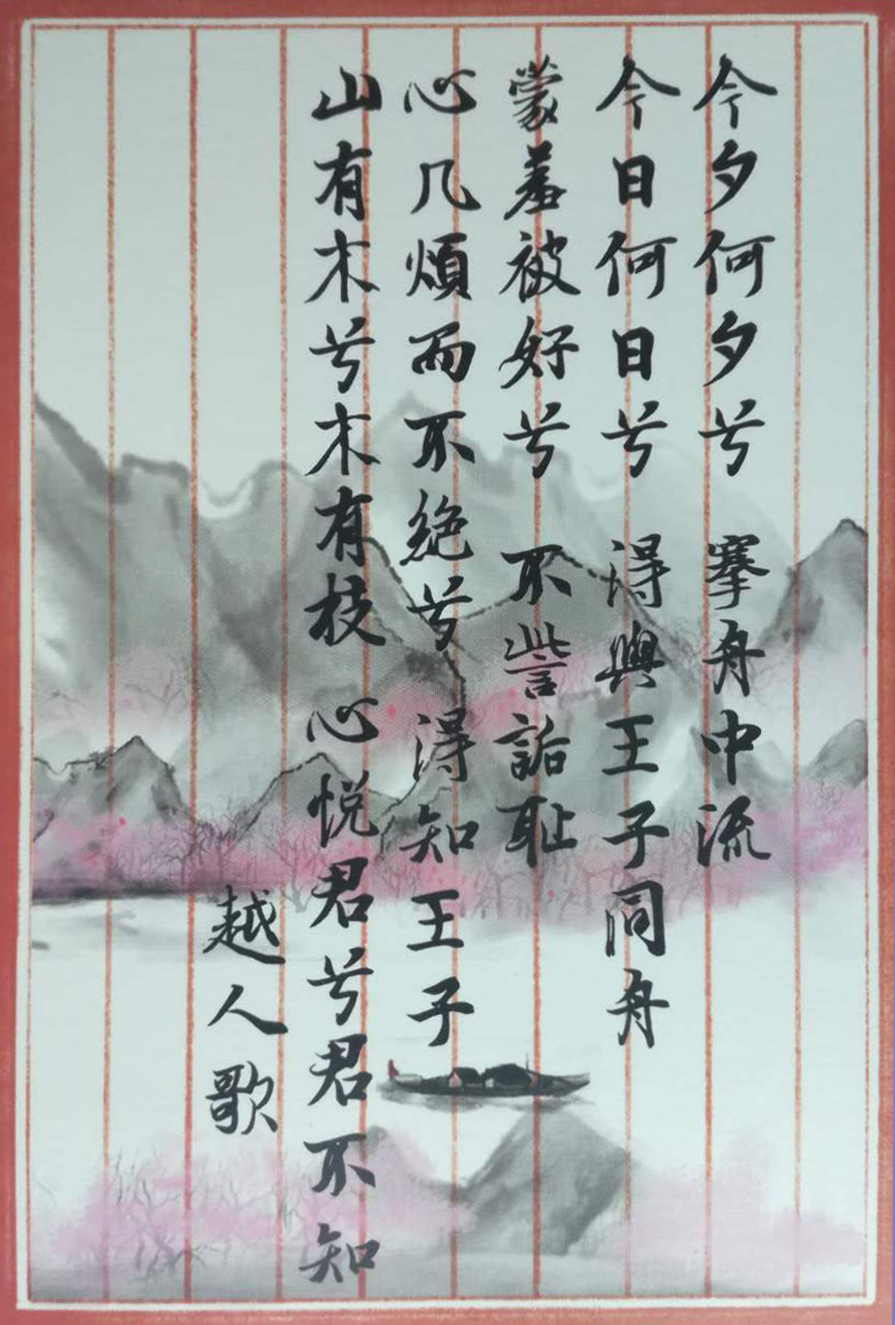 今夕何夕兮 搴舟中流
今日何日兮 得與王子同舟
蒙羞被好兮 不訾詬耻
心几煩而不絕兮 得知王子
山有木兮木有枝 心悦君兮君不知
越人歌